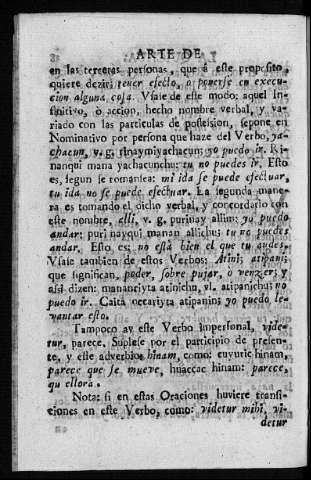 ARTE DE
en las terceras personas, que á este proposito,
quiere dezir: tener efecto, o ponerse en execu-
cion alguna cosa. Vsase de este modo: aquel In-
finitivo, o accion, hecho nombre verbal, y va-
riado con las particulas de possesion, sepone en
Nominativo por persona que haze del Verbo, ya-
chacun, v. g. rinaymiyachacun: yo puedo ir. Ri-
nanqui mana yachacunchu: tu no puedes ir. Esto
es, segun se romansea: mi ida se puede efectuar,
tu ida no se puede efectuar. La segunda mane-
ra es tomando el dicho verbal, y concordarlo con
este nombre, alli, v. g. purinay allim: yo puedo
andar: puri nayqui manan allichu: tu no puedes
andar. Esto es: no està bien el que tu andes.
Vsase tambien de estos Verbos: Atini; atipani;
que significan, poder, sobre pujar, o venzer; y
assi dizen: manancriyta atinichu, vl. atipanichu: no
puedo ir. Caita occariyta atipanim; yo puedo le-
vantar esto.
Tampoco ay este Verbo impersonal, vide-
tur, parece. Suplese por el participio de presen-
te, y este adverbio: hinam, como: cuyuric hinam,
parece que se mueve, huaccac hinam: parece,
qu ellora.
Nota: si en estas Oraciones huviere transi-
ciones en este Verbo, como: videtur mihi, vi-
detur